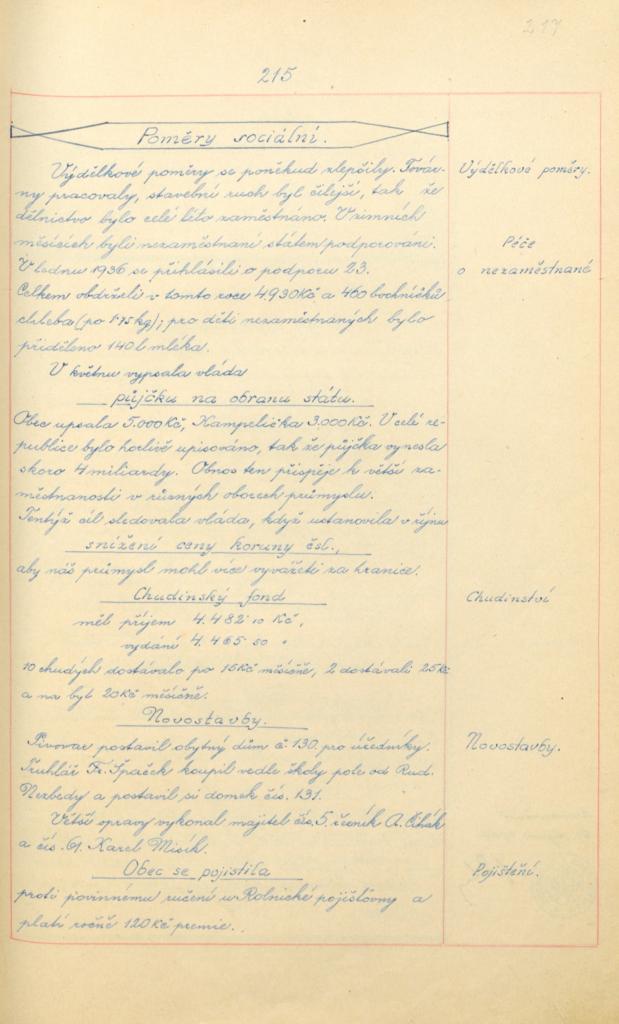 217
215
Poměry sociální.
Výdělkové poměry se poněkud zlepšily. Továr-
Výdělkové poměry.
ny pracovaly, stavební ruch byl čilejší, tak že
dělnictvo bylo celé léto zaměstnáno. V zimních
měsících byli nezaměstnaní státem podporováni.
Péče
V lednu 1936 se přihlásili o podporu 23.
o nezaměstnané
Celkem obdrželi v tomto roce 4.930 Kč a 460 bochníčků
chleba (po 1·75 kg); pro děti nezaměstnaných bylo
přiděleno 140 l mléka.
V květnu vypsala vláda
půjčku na obranu státu.
Obec upsala 5.000 Kč, Kampelička 3.000 Kč. V celé re-
publice bylo horlivě upisováno, tak že půjčka vynesla
skoro 4 miliardy. Obnos ten přispěje k větší za-
městnanosti v různých oborech průmyslu.
Tentýž cíl sledovala vláda, když ustanovila v říjnu
snížení ceny koruny čsl.,
aby náš průmysl mohl více vyvážeti za hranice.
Chudinský fond
Chudinství
měl příjem 4.482·10 Kč,
vydání 4.465·50 "
10 chudých dostávalo po 15 Kč měsíčně, 2 dostávali 25 Kč
a na byt 20 Kč měsíčně.
Novostavby.
Pivovar postavil obytný dům č. 130. pro úředníky.
Novostavby.
Truhlář Fr. Špaček koupil vedle školy pole od Rud.
Nezbedy a postavil si domek čís. 131.
Větší opravy vykonal majitel čís. 5. řezník A. Cihák
a čís. 61. Karel Misík.
Obec se pojistila
Pojištění.
proti povinnému ručení u Rolnické pojišťovny a
platí ročně 120 Kč premie.